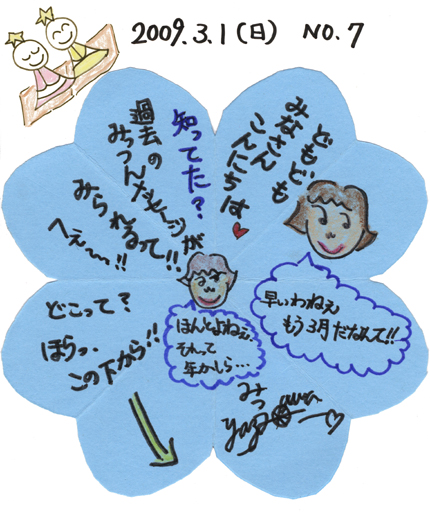 2009.3.1(日) NO.7
どもども
みなさん
こんにちは♥
早いわねぇ
もう3月だなんて!!
知ってた?
過去の
みつんだモーツが
みられるって!!
へぇ〜〜!!
ほんとよねぇ
それって
年かしら…
どこって?
ほらっ、
この下から!!
みつ